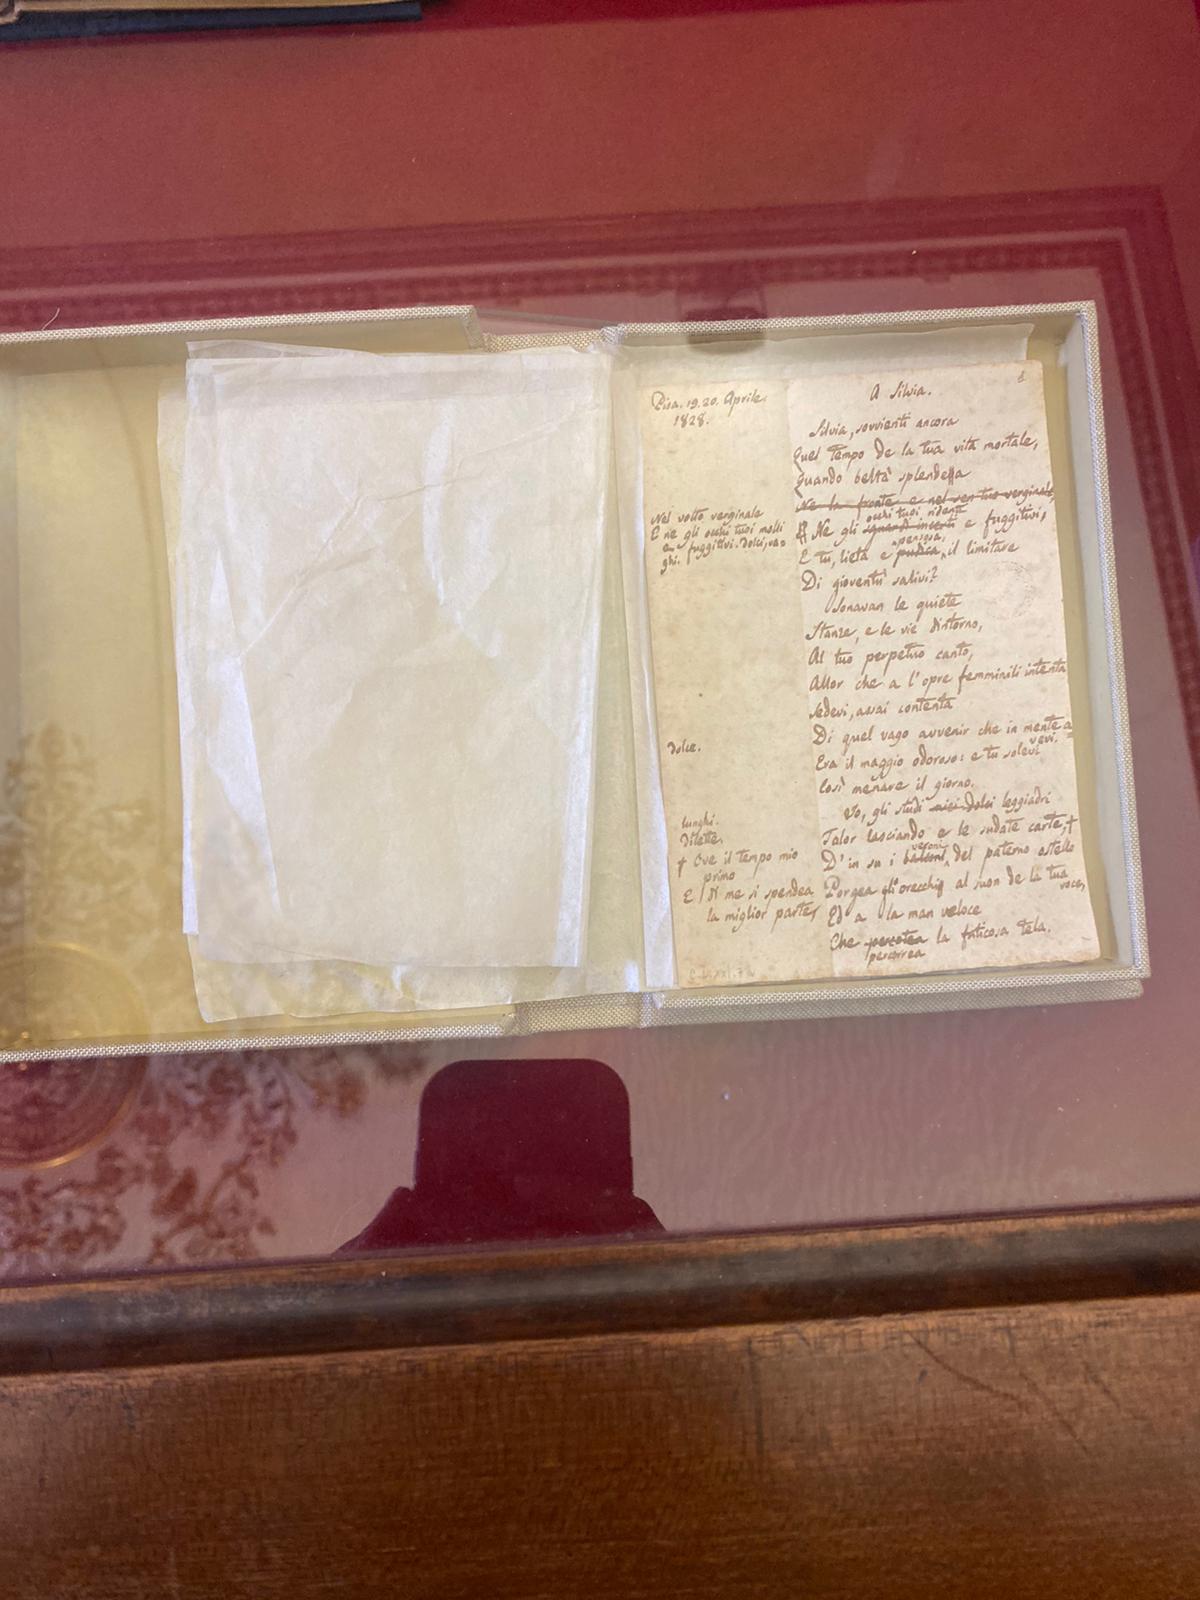 Pisa. 19. 20. Aprile.
1828.
A Silvia.
1
Silvia, sovvienti ancora
Quel tempo de la tua vita mortale,
Quando beltà splendea
Ne la fronte e nel sen tuo verginale,
occhi tuoi ridenti
E Ne gli sguardi incerti e fuggitivi,
pensosa,
E tu, lieta e pudica, il limitare
Di gioventù salivi?
Sonavan le quiete
Stanze, e le vie dintorno,
Al tuo perpetuo canto,
Allor che a l'opre femminili intenta
Sedevi, assai contenta
Di quel vago avvenir che in mente a=
vevi.
Era il maggio odoroso: e tu solevi
Così menare il giorno.
Io, gli studi miei dolci leggiadri
Talor lasciando e le sudate carte,†
veroni
D'in su i balconi del paterno ostello
Porgea gli orecchi al suon de la tua
voce,
Ed a la man veloce
Che percotea la faticosa tela.
percorrea
Nel volto verginale
E ne gli occhi tuoi molli
e fuggitivi. dolci, va=
ghi.
dolce.
lunghi.
dilette.
† Ove il tempo mio
primo
E di me si spendea
la miglior parte,